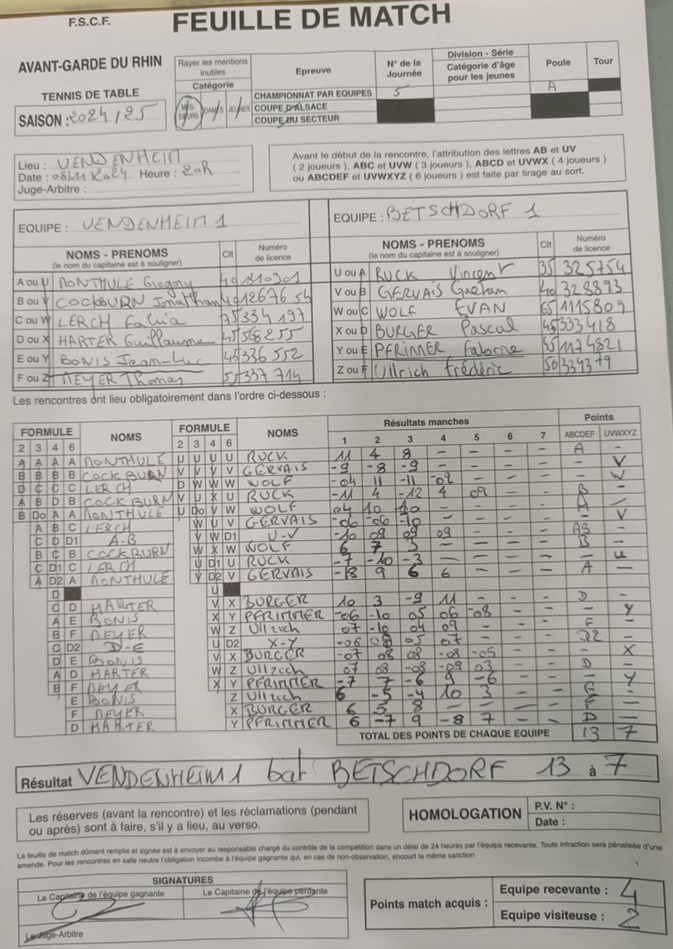 F.S.C.F. FEUILLE DE MATCH
AVANT-GARDE DU RHIN
TENNIS DE TABLE
SAISON : 2024/25
Rayer les mentions inutiles
Catégorie
MESSIEURS DAMES JEUNES
Epreuve
N° de la Journée
Division - Série
Catégorie d'âge pour les jeunes
Poule
Tour
CHAMPIONNAT PAR EQUIPES 5 A
COUPE D'ALSACE
COUPE DU SECTEUR
Lieu : VENDENHEIM
Date : 08/11/2024 Heure : 20h
Juge-Arbitre :
Avant le début de la rencontre, l'attribution des lettres AB et UV
( 2 joueurs ), ABC et UVW ( 3 joueurs ), ABCD et UVWX ( 4 joueurs )
ou ABCDEF et UVWXYZ ( 6 joueurs ) est faite par tirage au sort.
EQUIPE : VENDENHEIM 1
EQUIPE : BETSCHDORF 1
NOMS - PRENOMS (le nom du capitaine est à souligner) Clt Numéro de licence
NOMS - PRENOMS (le nom du capitaine est à souligner) Clt Numéro de licence
A ou U MONTHULE Gregory
U ou A RUCK Vincent 35 325754
B ou V COCKBURN Jonathan
V ou B GERVAIS Gaetan 40 328893
C ou W LERCH 75 334 197
W ou C WOLF EVAN 65 1115809
D ou X HARTER Guillaume 45 568255
X ou D BURGER Pascal 45 333418
E ou Y BONIS Jean-Luc 45 336 552
Y ou E PFRIMMER 1174821
F ou Z MEYER Thomas 55 337 714
Z ou F Ullrich Frédéric 50 334379
Les rencontres ont lieu obligatoirement dans l'ordre ci-dessous :
FORMULE NOMS FORMULE NOMS Résultats manches Points
2 3 4 6 2 3 4 6 1 2 3 4 5 6 7 ABCDEF UVWXYZ
A A A A MONTHULE U U U U RUCK 11 4 8 - - - - A -
B B B B COCKBURN V V V V GERVAIS -9 -8 -9 - - - - - V
D C C C LERCH D W W W WOLF -04 11 -11 -02 - - - - W
A B D B COCKBURN V U X U RUCK -11 4 -12 4 09 - - B -
B Do A A MONTHULE U Do V W WOLF 04 10 10 - - - - A -
A B C LERCH W U V GERVAIS -06 -06 -10 - - - - - V
C D D1 A-B V W D1 U-V -10 08 09 09 - - - AB -
B C B COCKBURN W X W WOLF 6 7 3 - - - - B -
C D1 C LERCH U D1 U RUCK -7 -10 -3 - - - - - U
A D2 A MONTHULE V D2 V GERVAIS 9 6 6 - - - A -
D U
C D HARTER V X BURGER 10 3 -9 11 - - - D -
A E BONIS X Y PFRIMMER -06 -10 05 06 -08 - - - Y
B F MEYER W Z Ullrich 07 -10 04 09 - - - F -
C D2 D-E U D2 X-Y -06 08 05 07 - - - D2 -
D E BONIS V X BURGER -07 08 08 -08 -05 - - - X
A D HARTER W Z Ullrich 07 08 -08 -09 03 - - D -
B F MEYER X Y PFRIMMER -7 7 -6 9 -6 - - - Y
E BONIS Z Ullrich 6 -5 -4 10 3 - - -
F MEYER X BURGER 6 5 8 - - - - F -
D HARTER Y PFRIMMER 6 -7 9 -8 7 - - D -
TOTAL DES POINTS DE CHAQUE EQUIPE 13 7
Résultat VENDENHEIM 1 bat BETSCHDORF 13 à 7
Les réserves (avant la rencontre) et les réclamations (pendant
ou après) sont à faire, s'il y a lieu, au verso.
HOMOLOGATION
P.V. N° :
Date :
La feuille de match dûment remplie et signée est à envoyer au responsable chargé du contrôle de la compétition dans un délai de 24 heures par l'équipe recevante. Toute infraction sera pénalisée d'une
amende. Pour les rencontres en salle neutre l'obligation incombe à l'équipe gagnante qui, en cas de non-observation, encourt la même sanction
SIGNATURES
Le Capitaine de l'équipe gagnante
Le Capitaine de l'équipe perdante
Le Juge-Arbitre
Points match acquis :
Equipe recevante : 4
Equipe visiteuse : 2